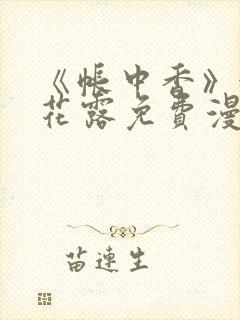 《帐中香》
花露免费漫
苗连生